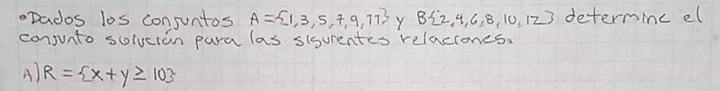 •Dados los conjuntos A={1,3,5,7,9,11} y B{2,4,6,8,10,12} determine el
conjunto solución para las sigurentes relaciones.
A) R = {x+y ≥ 10}